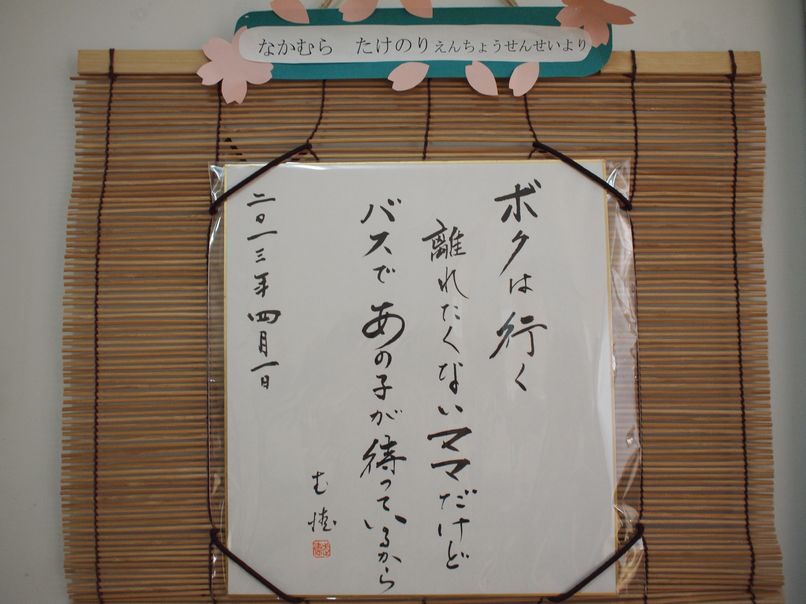 なかむら　たけのりえんちょうせんせいより
ボクは行く
離れたくないママだけど
バスであの子が待っているから
二〇一三年四月一日